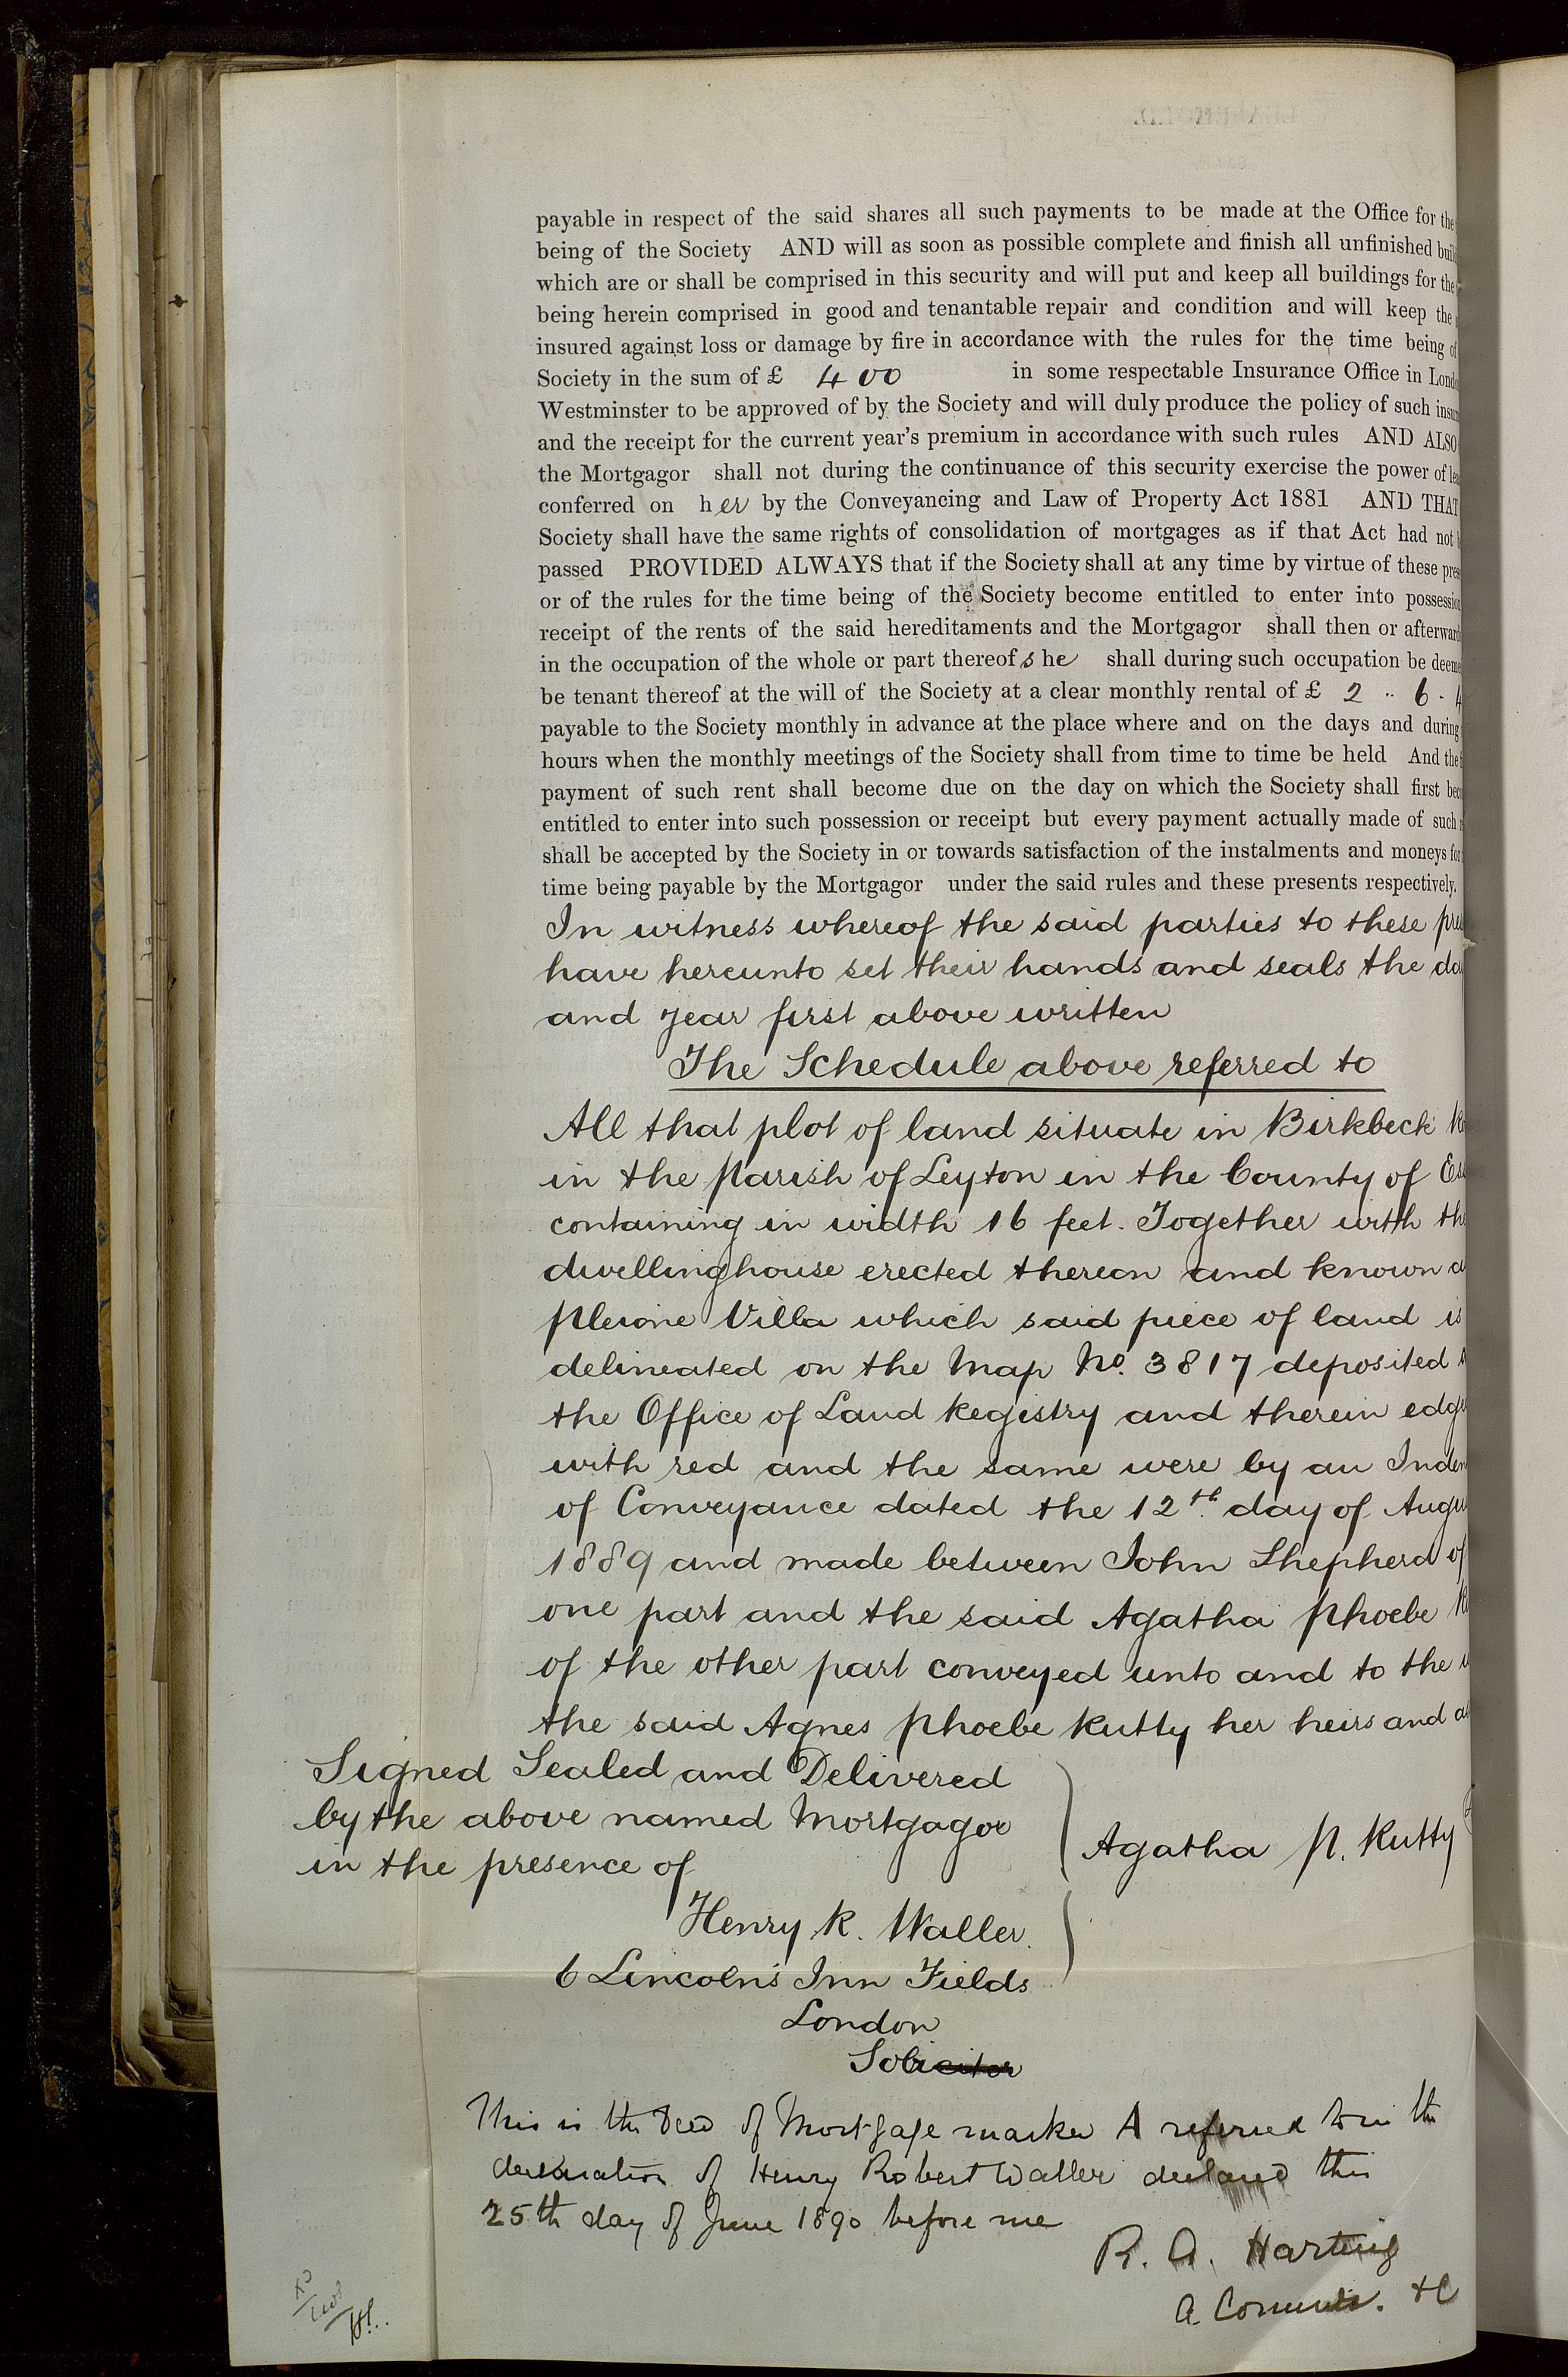 payable in respect of the said shares all such payments to be made at the Office for the
being of the Society AND will as soon as possible complete and finish all unfinished buil
which are or shall be comprised in this security and will put and keep all buildings for the
being herein comprised in good and tenantable repair and condition and will keep the
insured against loss or damage by fire in accordance with the rules for the time being of
Society in the sum of £ 400 in some respectable Insurance Office in Lond
Westminster to be approved of by the Society and will duly produce the policy of such insur
and the receipt for the current year's premium in accordance with such rules AND ALSO
the Mortgagor shall not during the continuance of this security exercise the power of lea
conferred on her by the Conveyancing and Law of Property Act 1881 AND THAT
Society shall have the same rights of consolidation of mortgages as if that Act had not
passed PROVIDED ALWAYS that if the Society shall at any time by virtue of these pres
or of the rules for the time being of the Society become entitled to enter into possession
receipt of the rents of the said hereditaments and the Mortgagor shall then or afterward
in the occupation of the whole or part thereof she shall during such occupation be deeme
be tenant thereof at the will of the Society at a clear monthly rental of £ 2 .. 6 . 4
payable to the Society monthly in advance at the place where and on the days and during
hours when the monthly meetings of the Society shall from time to time be held And the
payment of such rent shall become due on the day on which the Society shall first bec
entitled to enter into such possession or receipt but every payment actually made of such
shall be accepted by the Society in or towards satisfaction of the instalments and moneys for
time being payable by the Mortgagor under the said rules and these presents respectively.
In witness whereof the said parties to these pre
have hereunto set their hands and seals the da
and year first above written
The Schedule above referred to
All that plot of land situate in Birkbeck Ro
in the Parish of Leyton in the County of Ess
containing in width 16 feet. Together with th
dwellinghouse erected thereon and known a
Pleione Villa which said piece of land is
delineated on the Map No. 3817 deposited
the Office of Land Registry and therein edg
with red and the same were by an Inden
of Conveyance dated the 12th day of Augu
1889 and made between John Shepherd of
one part and the said Agatha Phoebe
of the other part conveyed unto and to the u
the said Agnes Phoebe Rutty her heirs and as
Signed Sealed and Delivered
by the above named Mortgagor
in the presence of
Agatha P. Rutty
Henry R. Waller.
6 Lincoln's Inn Fields
London
Solicitor
This is the Deed of Mortgage marked A referred to in the
declaration of Henry Robert Waller declared this
25th day of June 1890 before me
R. A. Harting
A Commr. &c